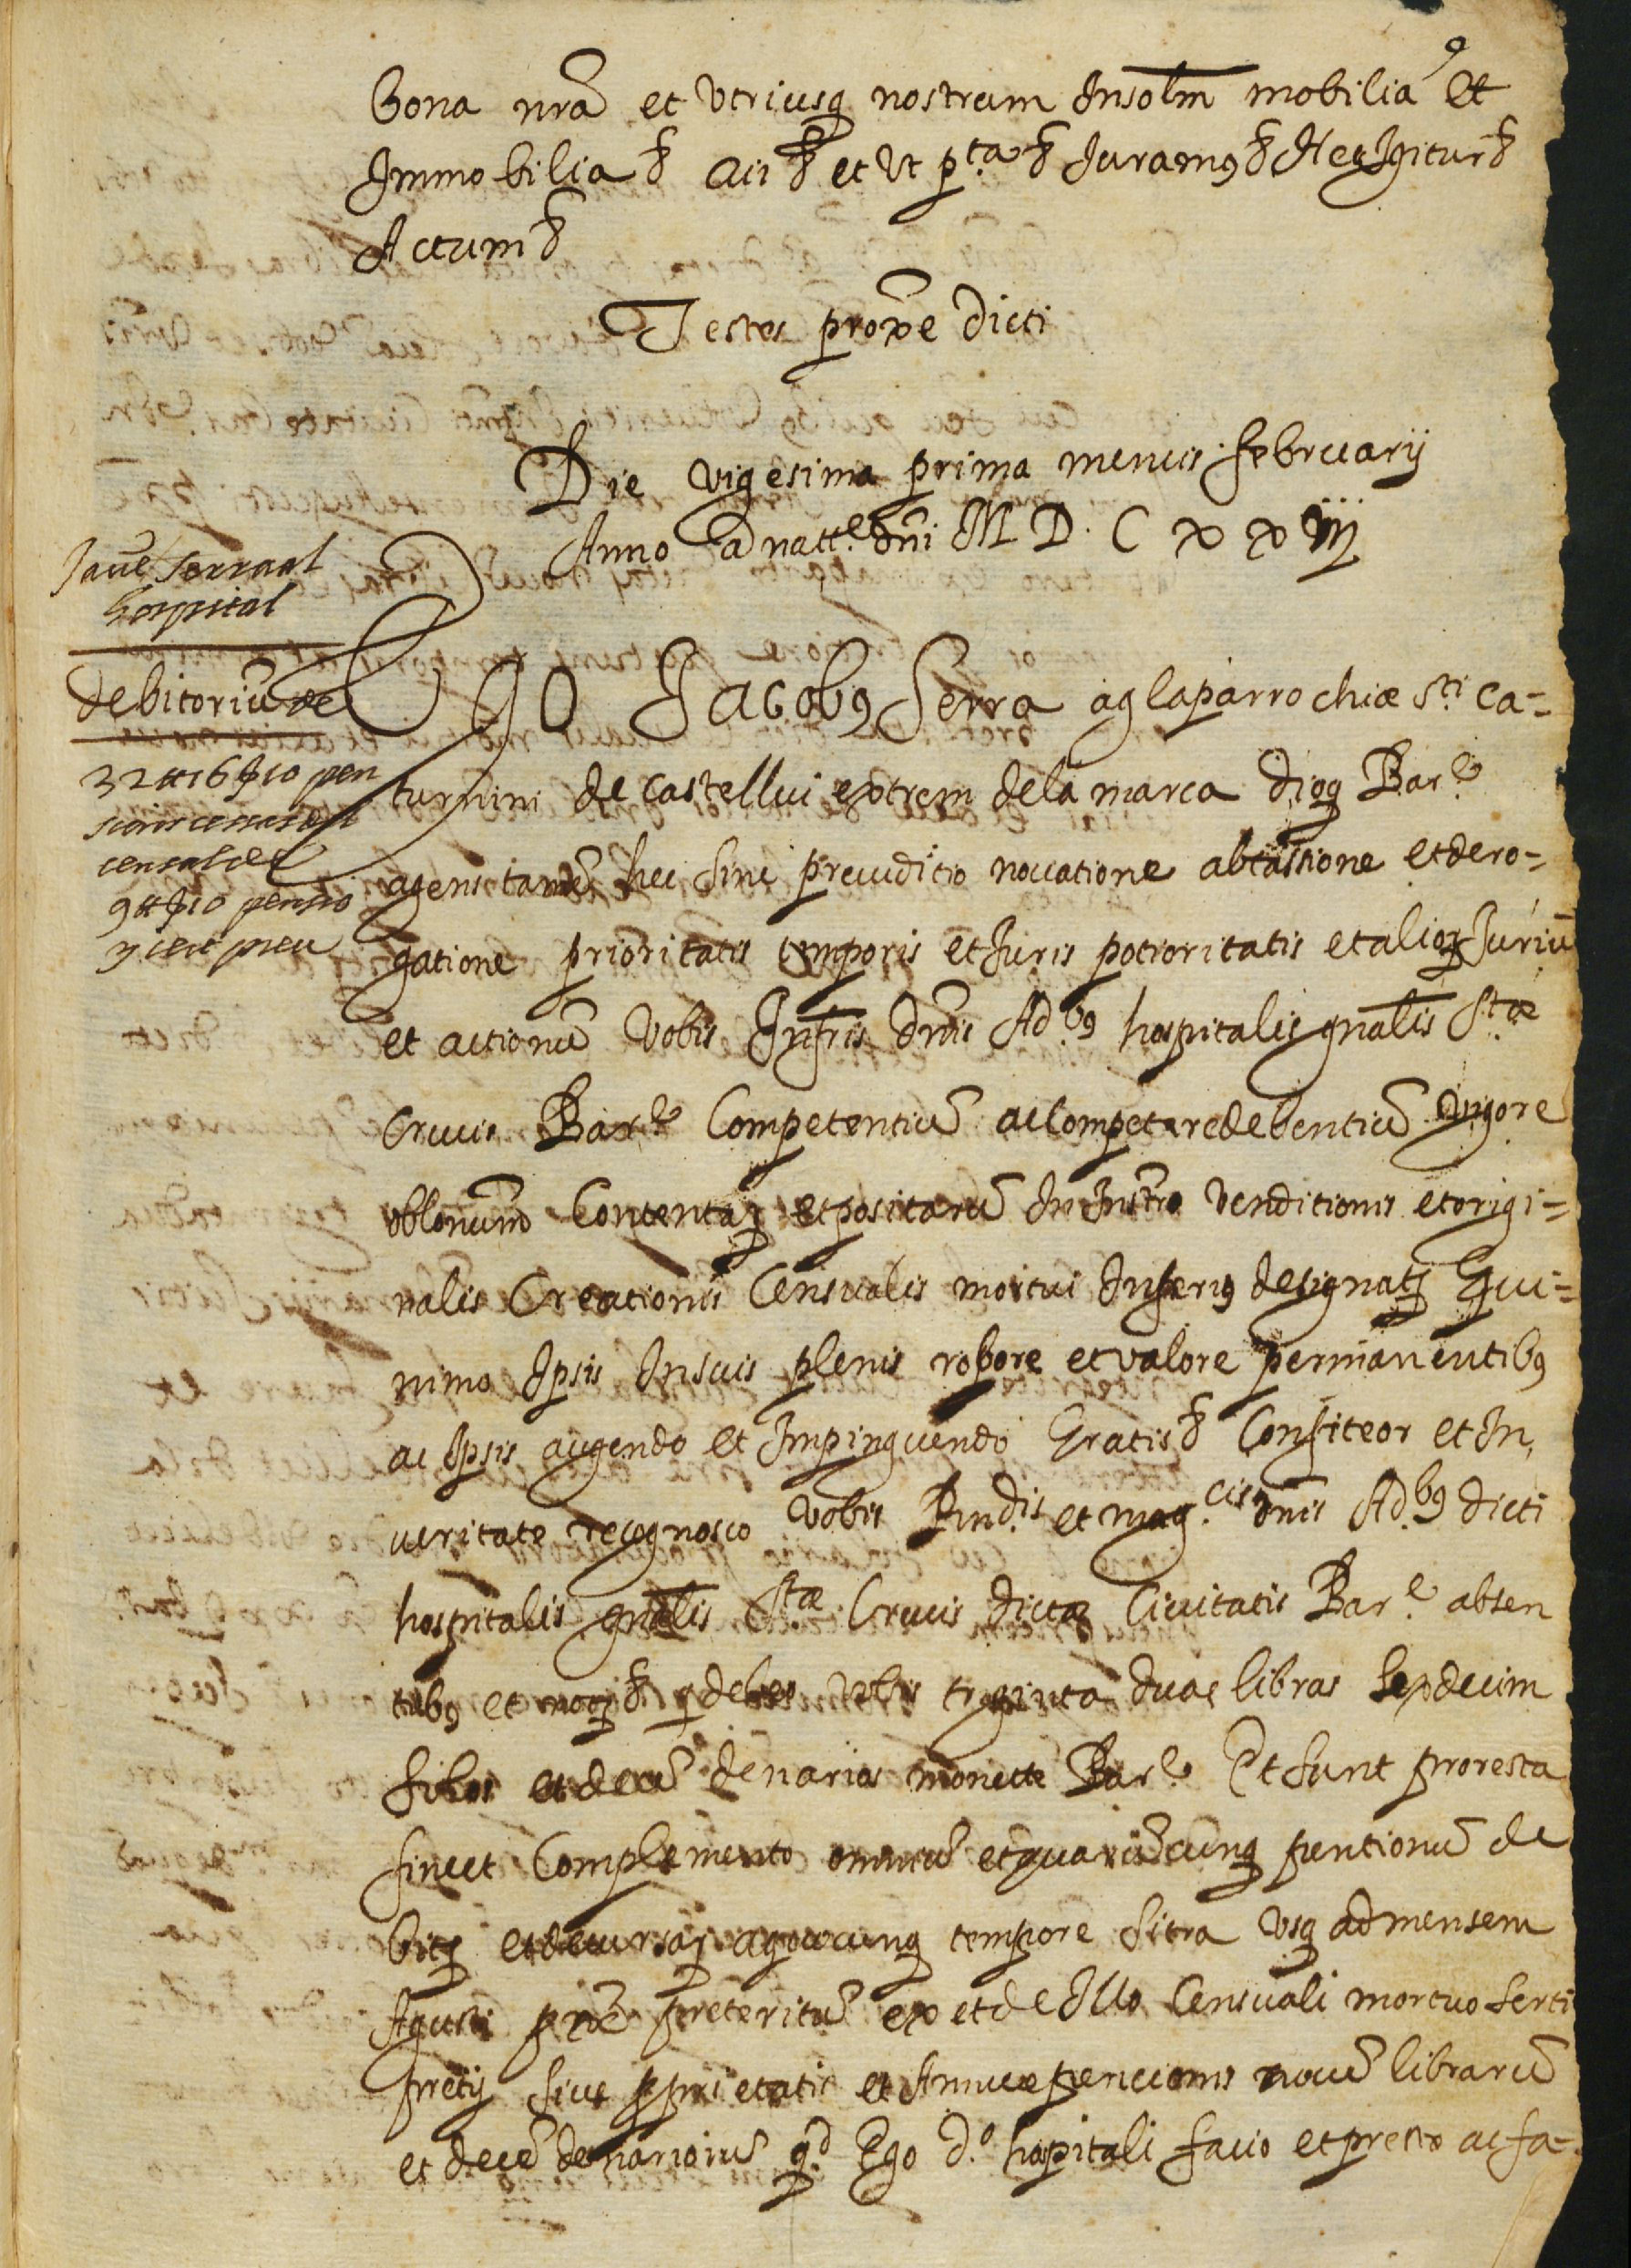 9
bona nrã et vtriusq nostrum Insolm mobilia et
Immobilia & aii & et Vt p.ta & Juram9 & Hec Igitur &
Actum &
Testes proxe dicti
Die vigesima prima mensis februarij
Anno a natt.e dñi M D. C x x iij
Jaue Serra al
hospital
debitoriũ de
32 ll 16 s 10 pen
sions cessas del
censal de
9 ll s 10 pensio
y cert preu
EGO Jacob9 Serra agla parrochiæ S.ti Ca=
turnini de castellui extrem dela marca diog Bar.e
agens tamẽ hec sine preiuditio nouatione abtassione et dero=
gatione prioritatis temporis et Juris potioritatis et aliorq Juriũ
et actionũ Vobis Infris Dnis Ad.b9 hospitalis gnalis S.tæ
Crucis Bar.e Competentiũ ac Competere debentiũ Vigore
oblonum Contentarq et positarũ In Instro Venditionis et origi=
nalis Creationis Censualis mortui Inferi9 designatq Qui=
nimo Ipsis In suis plenis robore et valore permanentib9
ac Ipsis augendo et Impinguendo Gratis & Confiteor et In
ueritate recognosco Vobis Rnd.is et mag.cis dnis Ad.b9 dicti
hospitalis gnalis S.tæ Crucis dictæ Ciuitatis Bar.e absen
tib9 et & q debeo Vobis triginta duas libras Sexdecim
solos et decẽ denarios monette Bar.e Et Sunt pro resta
fine et Complemento omniũ et quarũcunq pentionũ de
bitq et decursarq a quocunq tempore Sitra Vsq ad mensem
Agusti pñẽ preteritũ ex et de Illo Censuali mortuo Serti
pretij siue ppri etatis et Annuæ pencionis nouẽ librarũ
et decẽ denarioiũ q.d Ego d.o hospitali facio et presto ac fa=